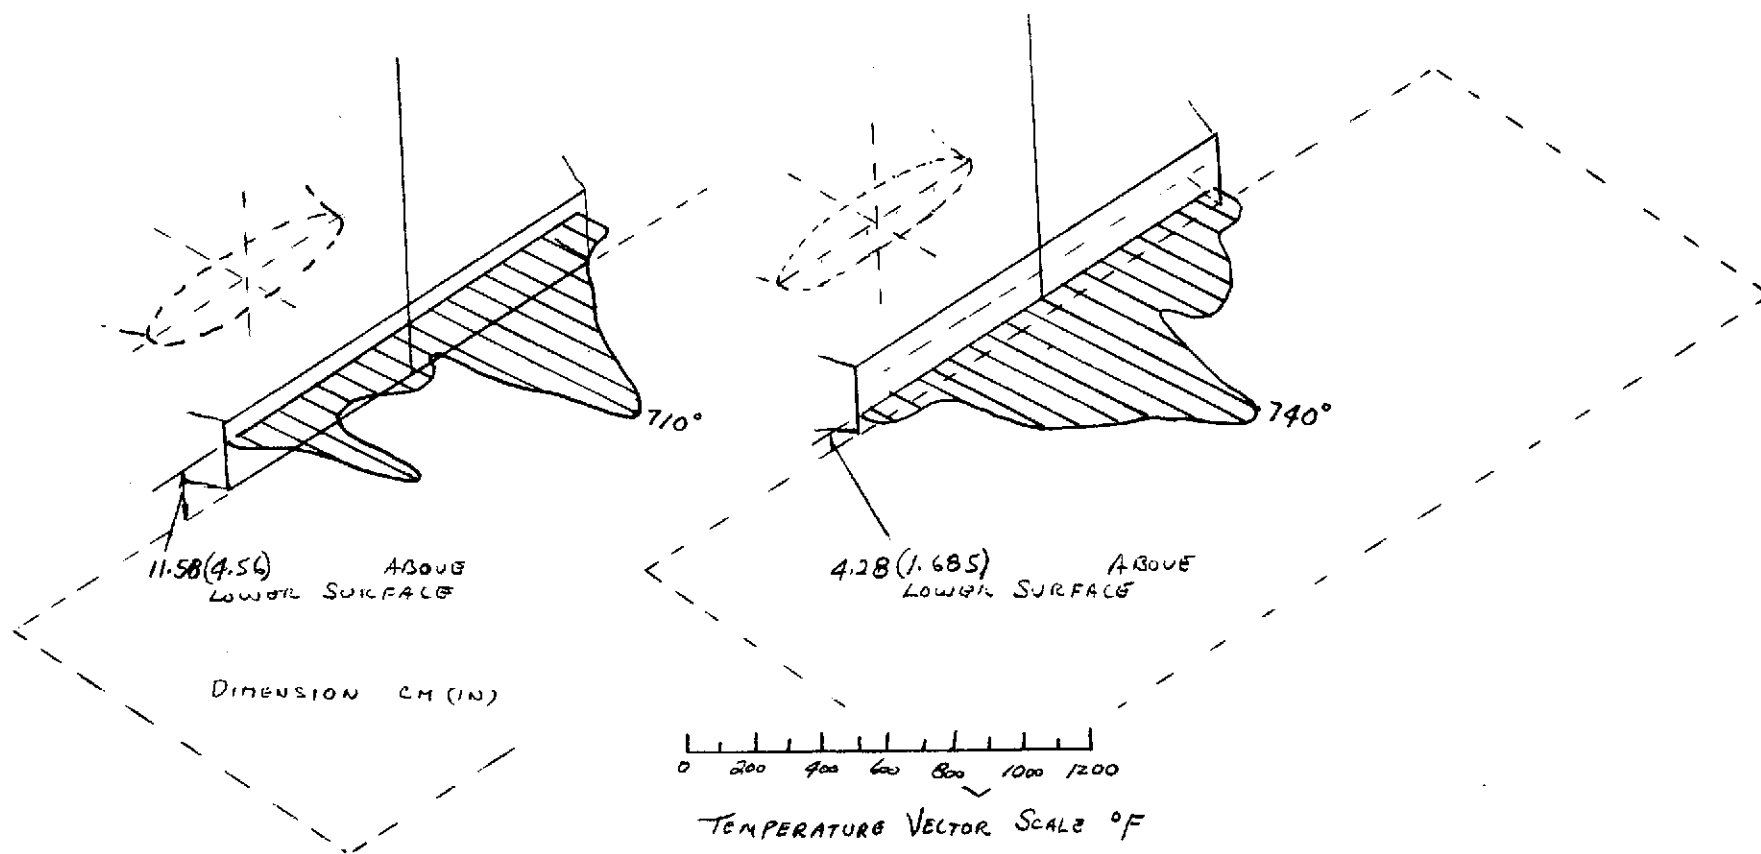 710°
740°
11.58(4.56) ABOVE
LOWER SURFACE
4.28(1.685) ABOVE
LOWER SURFACE
DIMENSION CM (IN)
0 200 400 600 800 1000 1200
TEMPERATURE VECTOR SCALE °F